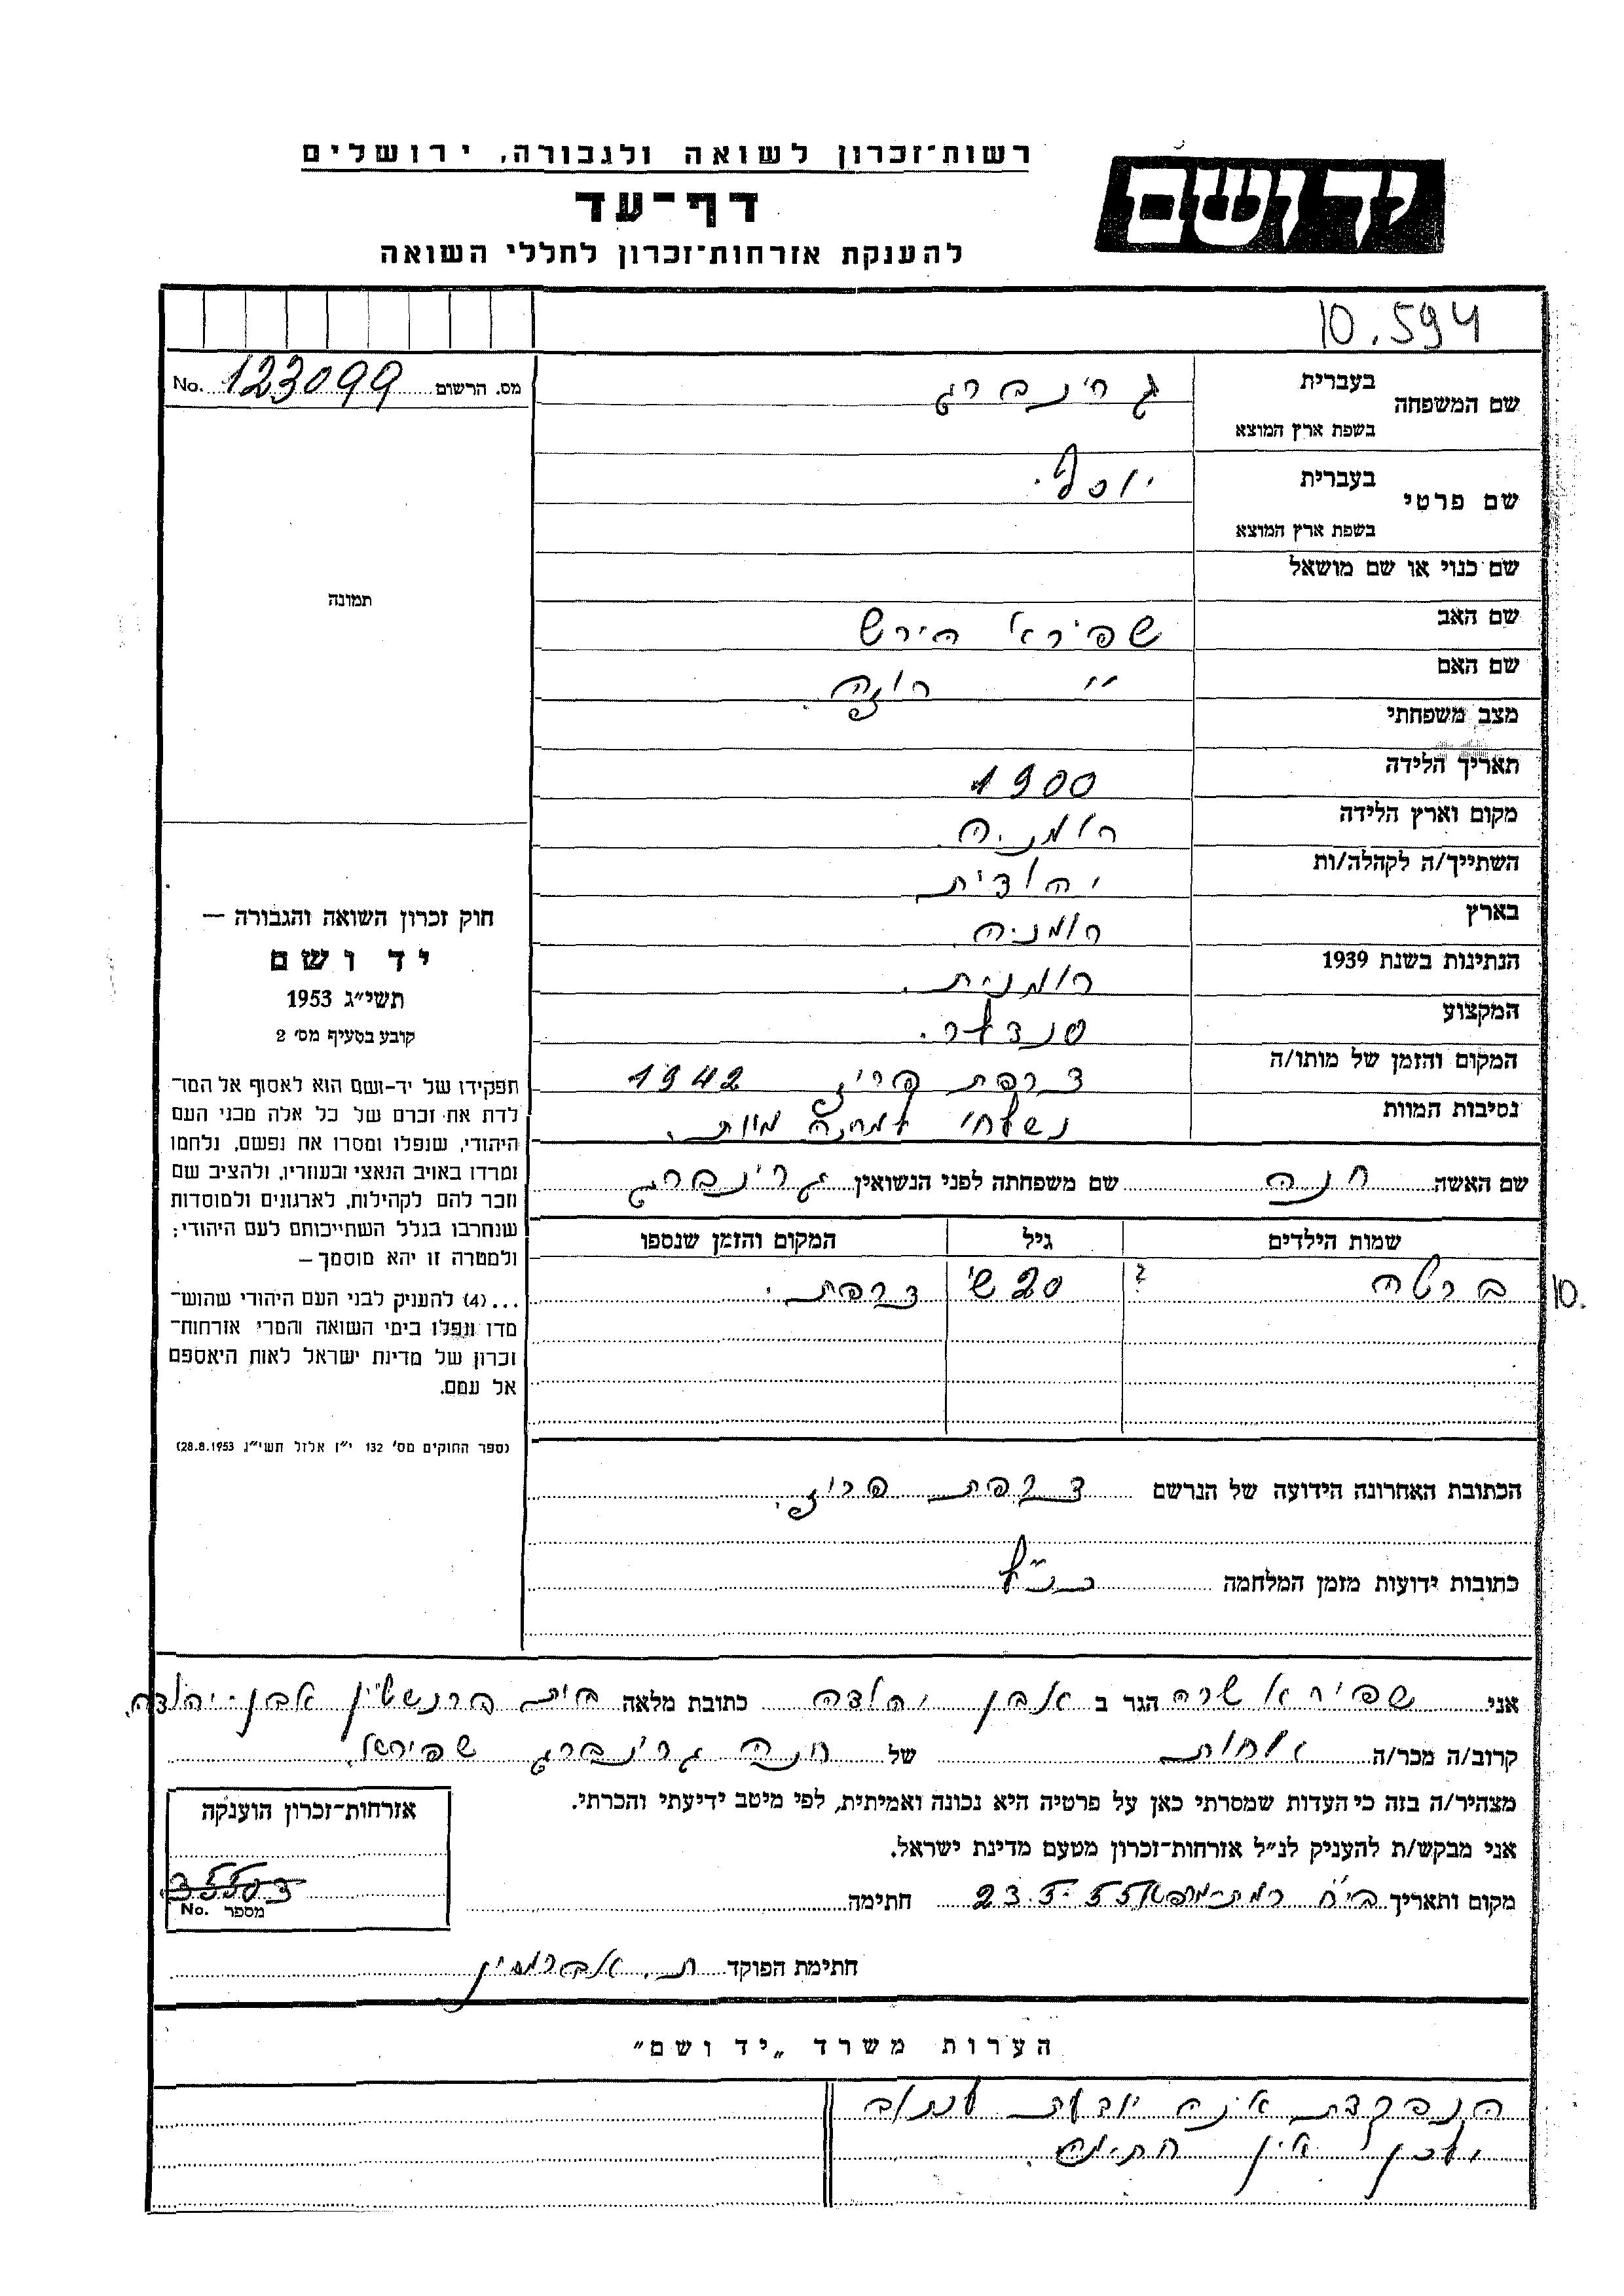 רשות־זכרון לשואה ולגבורה, ירושלים
יד ושם
דף־עד
להענקת אזרחות־זכרון לחללי השואה
10.594
מס. הרשום 123099 No.
שם המשפחה בעברית גרינברג
בשפת ארץ המוצא
שם פרטי בעברית יוסף.
בשפת ארץ המוצא
שם כנוי או שם מושאל
תמונה
שם האב שפירא הירש
שם האם " רוזה.
מצב משפחתי
תאריך הלידה 1900
מקום וארץ הלידה רומניה
השתייך/ה לקהלה/ות יהודית
בארץ רומניה
הנתינות בשנת 1939 רומנית.
המקצוע סנדלר.
המקום והזמן של מותו/ה צרפת פריז 1942
נסיבות המוות נשלחו למחנה מוות.
שם האשה חנה שם משפחתה לפני הנשואין גרינברג
שמות הילדים גיל המקום והזמן שנספו
ברטה ? 20 ש' צרפת.
10.
חוק זכרון השואה והגבורה —
יד ושם
תשי״ג 1953
קובע בסעיף מס׳ 2
תפקידו של יד-ושם הוא לאסוף אל המו־
לדת את זכרם של כל אלה מבני העם
היהודי, שנפלו ומסרו את נפשם, נלחמו
ומרדו באויב הנאצי ובעוזריו, ולהציב שם
וזכר להם לקהילות, לארגונים ולמוסדות
שנחרבו בגלל השתייכותם לעם היהודי;
ולמטרה זו יהא מוסמך —
...(4) להעניק לבני העם היהודי שהוש־
מדו ונפלו בימי השואה והמרי אזרחות־
זכרון של מדינת ישראל לאות היאספם
אל עמם.
(ספר החוקים מס׳ 132 י״ז אלול תשי״ג 28.8.1953)
הכתובת האחרונה הידועה של הנרשם צרפת פריז.
כתובות ידועות מזמן המלחמה כנ״ל
אני שפירא שרה הגר ב אבן יהודה כתובת מלאה בית ברנשטיין אבן-יהודה.
קרוב/ה מכר/ה אחות של חנה גרינברג שפירא.
מצהיר/ה בזה כי העדות שמסרתי כאן על פרטיה היא נכונה ואמיתית, לפי מיטב ידיעתי והכרתי.
אני מבקש/ת להעניק לנ״ל אזרחות־זכרון מטעם מדינת ישראל.
מקום ותאריך 23.5.55 חתימה
אזרחות־זכרון הוענקה
35503
מספר No.
חתימת הפוקד ת. אברמסין
הערות משרד „יד ושם״
הנפקדת אינה יודעת לכתוב
ולכן אין חתימה.